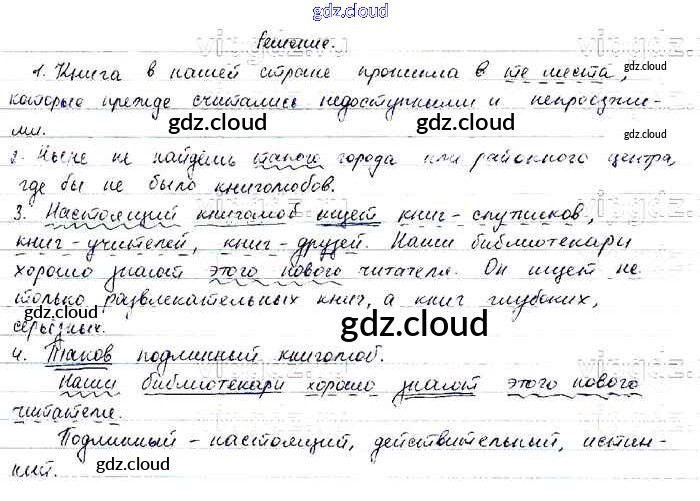 gdz.cloud
Решение.
gdz.cloud
1. Книга в нашей стране проникла в те места,
которые прежде считались недоступными и непроезжи-
ми.
gdz.cloud
gdz.cloud
gdz.cloud
2. Ныне не найдёшь такого города или районного центра,
где бы не было книголюбов.
3. Настоящий книголюб ищет книг-спутников,
книг-учителей, книг-друзей. Наши библиотекари
хорошо знают этого нового читателя. Он ищет не
только развлекательных книг, а книг глубоких,
серьёзных.
gdz.cloud
gdz.cloud
4. Таков подлинный книголюб.
gdz.cloud
Наши библиотекари хорошо знают этого нового
читателя.
gdz.cloud
Подлинный - настоящий, действительный, истин-
ный.
gdz.cloud
gdz.cloud